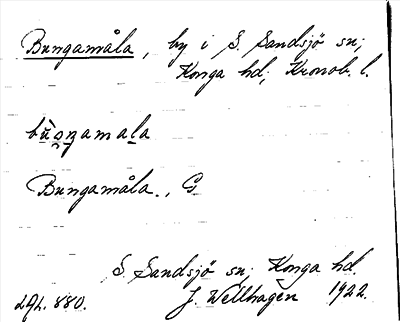 Bungamåla, by i S. Sandsjö sn;
Konga hd; Kronob. l.
Bungamåla., G
S Sandsjö sn; Konga hd.
J. Wellhagen 1922.